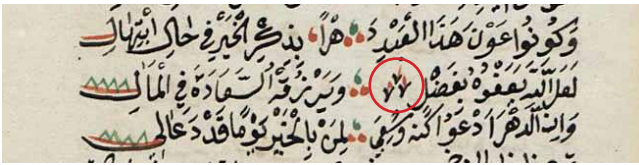 وَكُونُوا عَوْنَ هَذَا الْعَبْدِ دَهْرًا بِذِكْرِ الْخَيْرِ فِي حَالِ ابْتِهَالِ
لَعَلَّ اللهَ يَعْفُوهُ بِفَضْلٍ وَيَرْزُقُهُ السَّعَادَةَ فِي الْمَآلِ
وَإِنِّي الدَّهْرَ أَدْعُوا كُنْهَ وُسْعِي لِمَنْ بِالْخَيْرِ يَوْمًا قَدْ دَعَا لِي